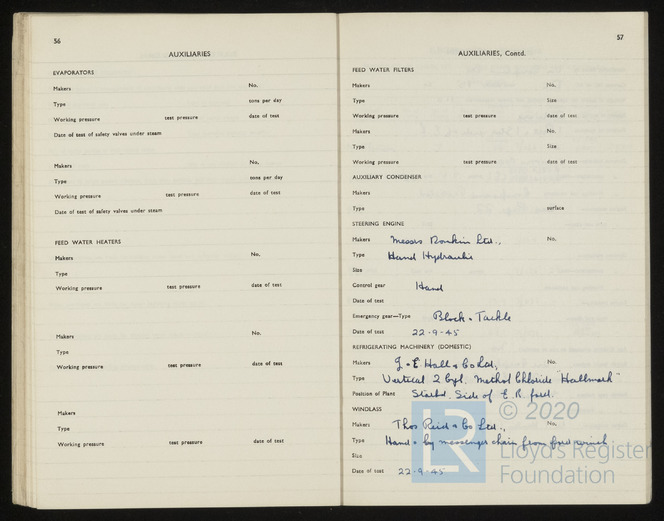 56
AUXILIARIES
EVAPORATORS
Makers No.
Type tons per day
Working pressure test pressure date of test
Date of test of safety valves under steam
Makers No,
Type tons per day
Working pressure test pressure date of test
Date of test of safety valves under steam
FEED WATER HEATERS
Makers No.
Type
Working pressure test pressure date of test
Makers No.
Type
Working pressure test pressure date of test
Makers
Type
Working pressure test pressure date of test
57
AUXILIARIES, Contd.
FEED WATER FILTERS
Makers No.
Type Size
Working pressure test pressure date of test
Makers No.
Type Size
Working pressure test pressure date of test
AUXILIARY CONDENSER
Makers
Type surface
STEERING ENGINE
Makers Messrs Donkin Ltd., No.
Type Hand Hydraulic
Size
Control gear Hand
Date of test
Emergency gear—Type Block & Tackle
Date of test 22-9-45
REFRIGERATING MACHINERY (DOMESTIC)
Makers J & E Hall & Co Ltd, No.
Type Vertical 2 Cyl. Methol Chloride "Hallmark"
Position of Plant Starbd. Side of E.R. ford.
WINDLASS
Makers Thos Reid & Co Ltd., No,
Type Hand & by messenger chain from ford winch
Size
Date of test 22-9-45
LR
© 2020
Lloyd's Register
Foundation